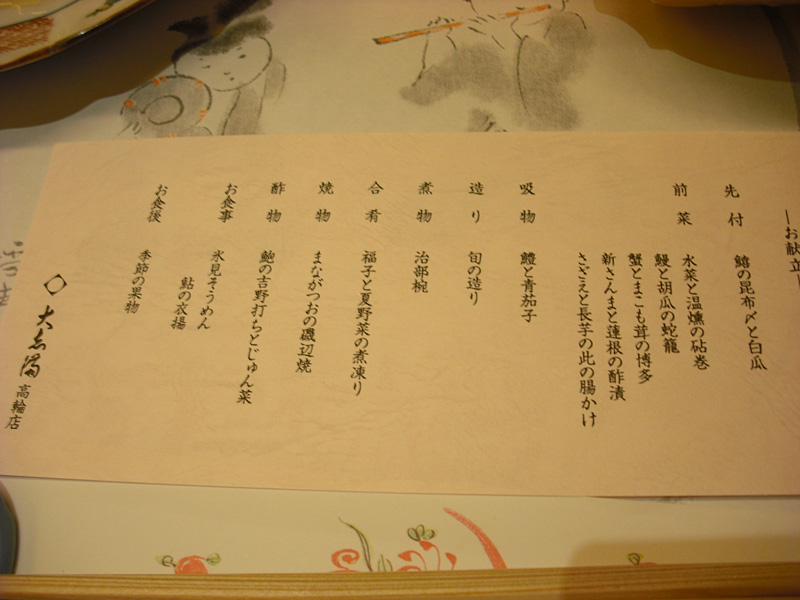 ―お献立―
先付 鱚の昆布〆と白瓜
前菜 水菜と温燻の砧巻
鰻と胡瓜の蛇籠
蟹とまこも茸の博多
新さんまと蓮根の酢漬
さざえと長芋の此の腸かけ
吸物 鱧と青茄子
造り 旬の造り
煮物 治部椀
合肴 福子と夏野菜の煮凍り
焼物 まながつおの磯辺焼
酢物 鮑の吉野打ちとじゅん菜
お食事 氷見そうめん
鮎の衣揚
お食後 季節の果物
大志満 高輪店